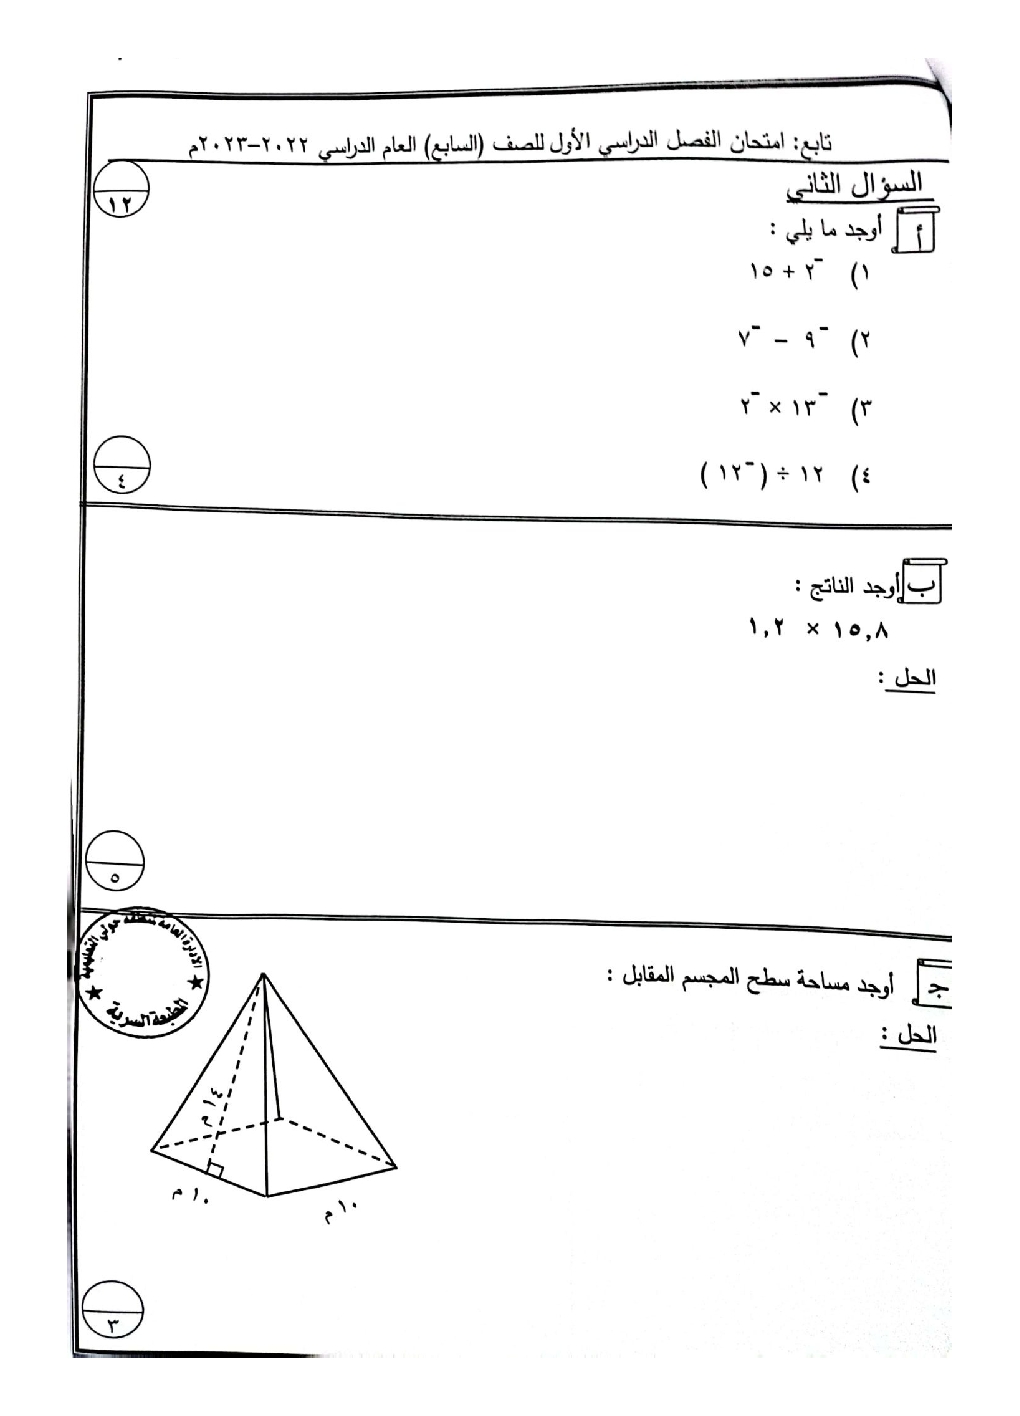 تابع: امتحان الفصل الدراسي الأول للصف (السابع) العام الدراسي ٢٠٢٢-٢٠٢٣م
السؤال الثاني
١٢
أ أوجد ما يلي :
١) ⁻٢ + ١٥
٢) ⁻٩ – ⁻٧
٣) ⁻١٣ × ⁻٢
٤) ١٢ ÷ (⁻١٢)
٤
ب أوجد الناتج :
١٥,٨ × ١,٢
الحل :
٥
الإدارة العامة لمنطقة حولي التعليمية
المطبعة السرية
ج أوجد مساحة سطح المجسم المقابل :
الحل :
١٤ م
١٠ م
١٠ م
٣